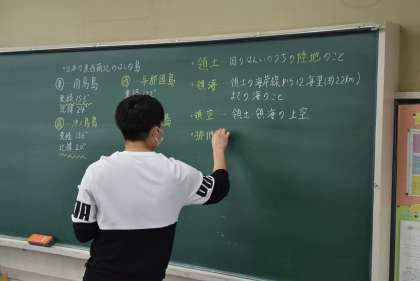 ・日本の東西南北のはしの島
東 南鳥島
東経 153°
北緯 24°
西 与那国島
東経 122°
南 沖ノ鳥島
東経 136°
北緯 20°
島
・領土…国のはんいのうちの陸地のこと
・領海…領土の海岸線から12海里(約22km)
までの海のこと
・領空…領土・領海の上空
・排他